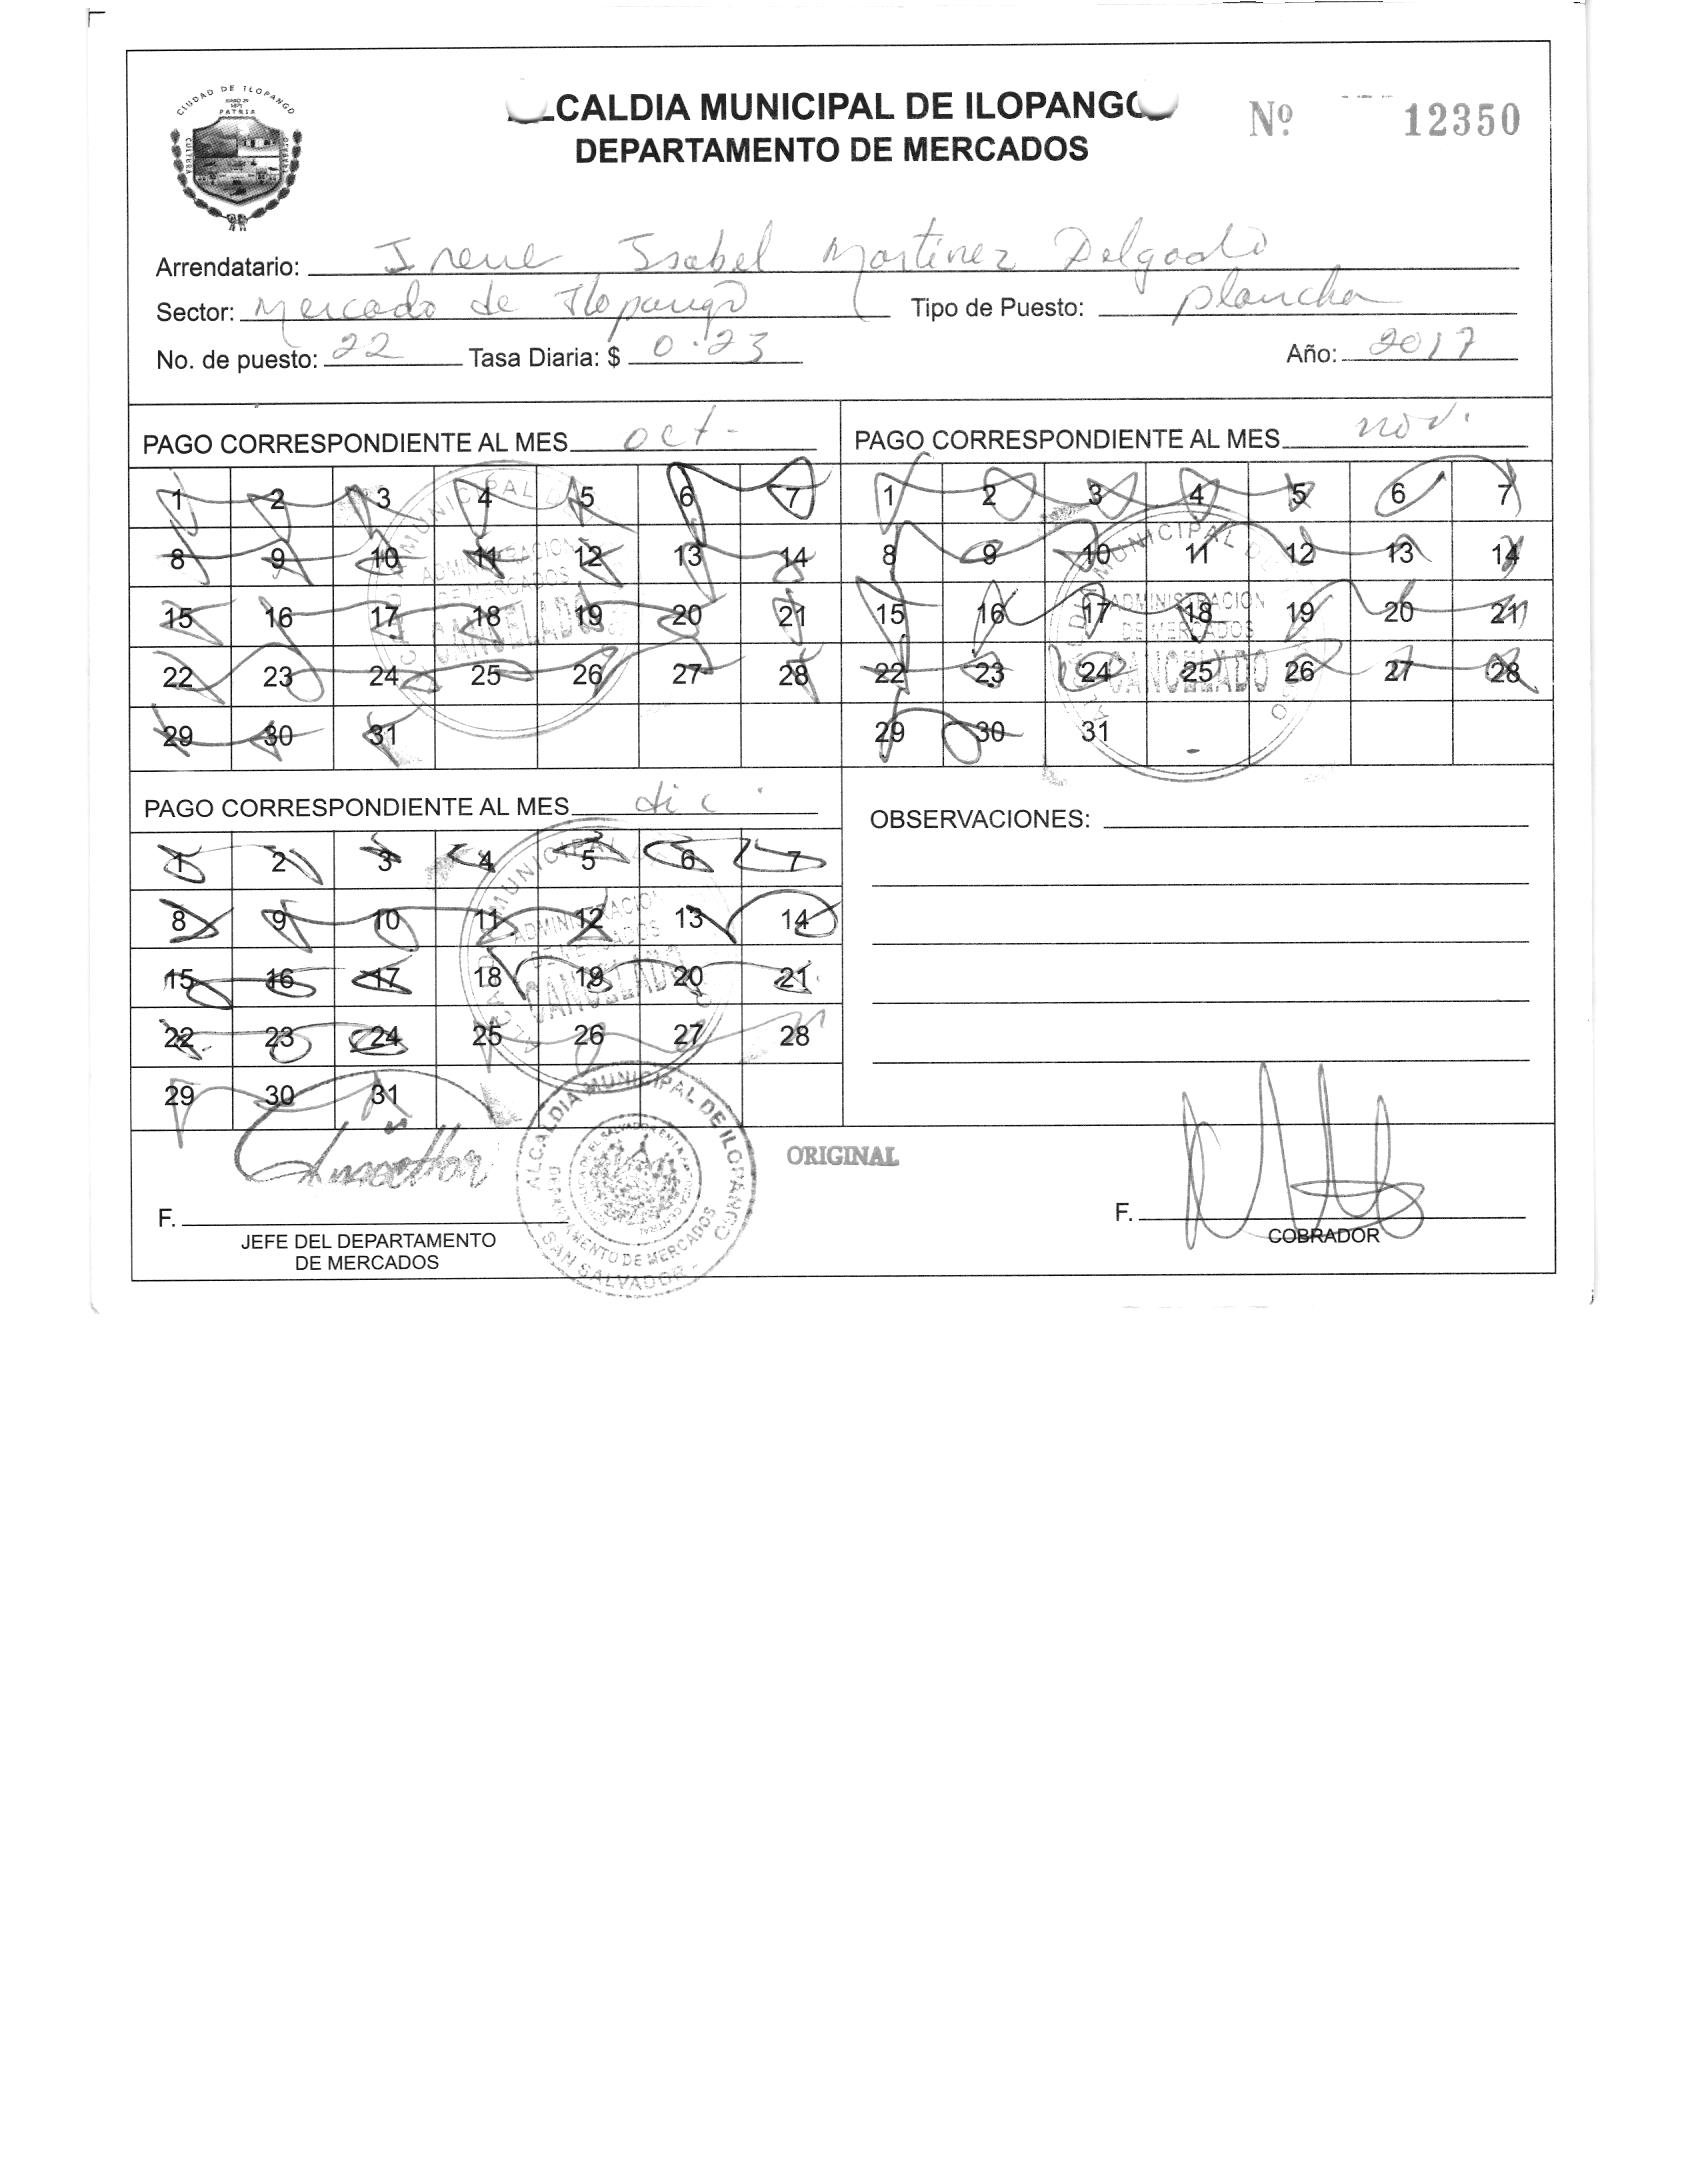 CIUDAD DE ILOPANGO
PATRIA
CULTURA
CALDIA MUNICIPAL DE ILOPANGO
Nº 12350
DEPARTAMENTO DE MERCADOS
Arrendatario: Irene Isabel Martinez Delgado
Sector: Mercado de Ilopango Tipo de Puesto: plancha
No. de puesto: 22 Tasa Diaria: $ 0.23 Año: 2017
PAGO CORRESPONDIENTE AL MES oct-
1 2 3 4 5 6 7
8 9 10 11 12 13 14
15 16 17 18 19 20 21
22 23 24 25 26 27 28
29 30 31
MUNICIPAL
ADMINISTRACION
DE MERCADOS
CANCELADO
PAGO CORRESPONDIENTE AL MES nov.
1 2 3 4 5 6 7
8 9 10 11 12 13 14
15 16 17 18 19 20 21
22 23 24 25 26 27 28
29 30 31
MUNICIPAL
ADMINISTRACION
DE MERCADOS
CANCELADO
PAGO CORRESPONDIENTE AL MES dic.
1 2 3 4 5 6 7
8 9 10 11 12 13 14
15 16 17 18 19 20 21
22 23 24 25 26 27 28
29 30 31
MUNICIPAL
ADMINISTRACION
DE MERCADOS
CANCELADO
OBSERVACIONES:
ALCALDIA MUNICIPAL DE ILOPANGO
DEPARTAMENTO DE MERCADOS
- SAN SALVADOR -
ORIGINAL
F.
JEFE DEL DEPARTAMENTO
DE MERCADOS
F.
COBRADOR